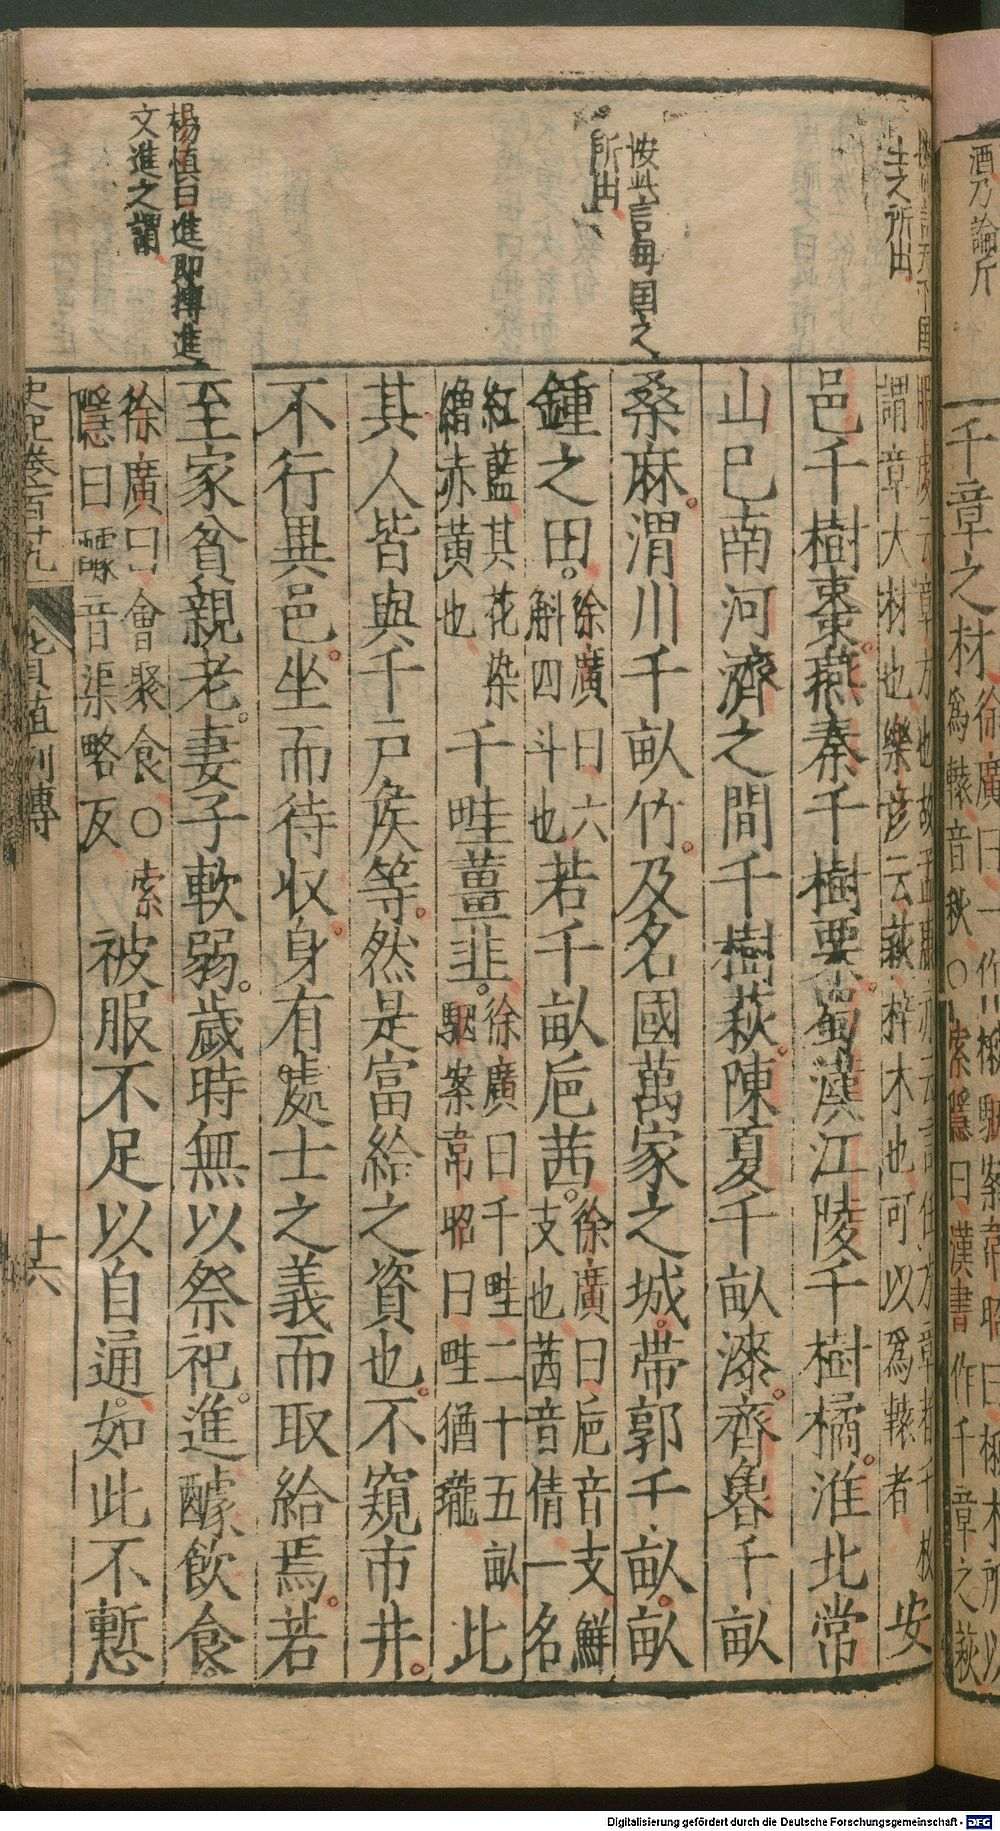 酒乃論斤
千章之材 徐廣曰一作 韋昭曰楸木所以
爲轅音秋○索隱曰漢書作千章之萩
生之所出
服虔云章方也
謂章大材也樂彦云萩梓木也可以爲轅者 安
邑千樹棗燕秦千樹栗蜀漢江陵千樹橘淮北常
山已南河濟之間千樹萩陳夏千畝漆齊魯千畝
按此言每国之
所出
桑麻渭川千畝竹及名國萬家之城帶郭千畝畝
鍾之田 徐廣曰六斛四斗也 若千畝巵茜 徐廣曰巵音支鮮支也茜音倩一名
紅藍其花染繒赤黃也 千畦薑韭 徐廣曰千畦二十五畝駰案韋昭曰畦猶壠 此
其人皆與千戸矦等然是富給之資也不窺市井
不行異邑坐而待收身有處士之義而取給焉若
楊慎曰進即摶進
文進之謂
至家貧親老妻子軟弱歲時無以祭祀進醵飲食
徐廣曰會聚食○索隱曰醵音渠略反 被服不足以自通如此不慙
史記卷百廿九 貨殖列傳 十六
Digitalisierung gefördert durch die Deutsche Forschungsgemeinschaft - DFG